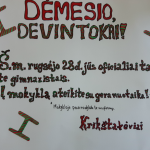 DĖMESIO,
DEVINTOKAI!
Š.m. rugsėjo 28d. jūs oficialiai ta
te gimnazistais.
Į mokyklą ateikite su gera nuotaika!
Krikštatėviai